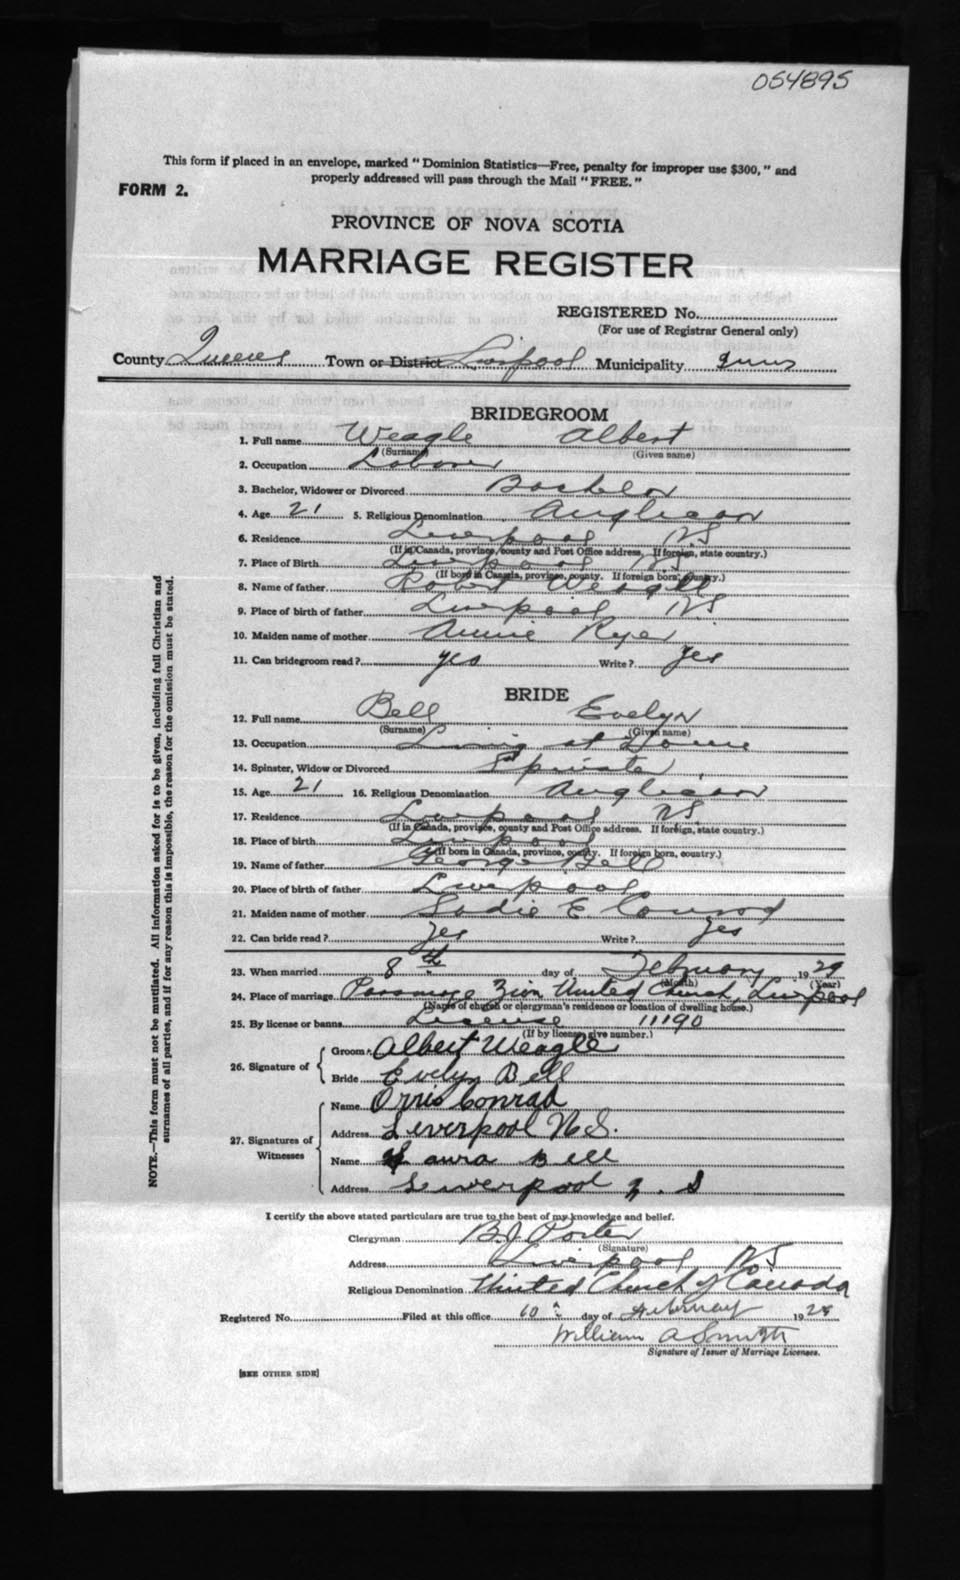 054895
This form if placed in an envelope, marked "Dominion Statistics—Free, penalty for improper use $300," and
properly addressed will pass through the Mail "FREE."
FORM 2.
PROVINCE OF NOVA SCOTIA
MARRIAGE REGISTER
REGISTERED No.
(For use of Registrar General only)
County Queens Town or District Liverpool Municipality Queens
BRIDEGROOM
1. Full name Weagle Albert
(Surname) (Given name)
2. Occupation Laborer
3. Bachelor, Widower or Divorced Bachelor
4. Age 21 5. Religious Denomination Anglican
6. Residence Liverpool NS
(If in Canada, province, county and Post Office address. If foreign, state country.)
7. Place of Birth Liverpool NS
(If born in Canada, province, county. If foreign born, country.)
8. Name of father Robert Weagle
9. Place of birth of father Liverpool NS
10. Maiden name of mother Annie
11. Can bridegroom read? yes Write? yes
BRIDE
12. Full name Bell Evelyn
(Surname) (Given name)
13. Occupation Living at Home
14. Spinster, Widow or Divorced
15. Age 21 16. Religious Denomination Anglican
17. Residence Liverpool NS
(If in Canada, province, county and Post Office address. If foreign, state country.)
18. Place of birth Liverpool
(If born in Canada, province, county. If foreign born, country.)
19. Name of father George Bell
20. Place of birth of father Liverpool
21. Maiden name of mother Sadie E Conrod
22. Can bride read? yes Write? yes
23. When married 8th day of February 1929
(Month) (Year)
24. Place of marriage Parsonage Zion United Church, Liverpool
(Name of church or clergyman's residence or location of dwelling house.)
25. By license or banns License 11190
(If by license, give number.)
26. Signature of Groom Albert Weagle
Bride Evelyn Bell
27. Signatures of Witnesses Name Orris Conrad
Address Liverpool N.S.
Name Laura Bell
Address Liverpool n.s
I certify the above stated particulars are true to the best of my knowledge and belief.
Clergyman B.J. Porter
(Signature)
Address Liverpool NS
Religious Denomination United Church of Canada
Registered No. Filed at this office day of February 19
William A Smith
Signature of Issuer of Marriage Licenses.
[SEE OTHER SIDE]
NOTE.—This form must not be mutilated. All information asked for is to be given, including full Christian and
surnames of all parties, and if for any reason this is impossible, the reason for the omission must be stated.